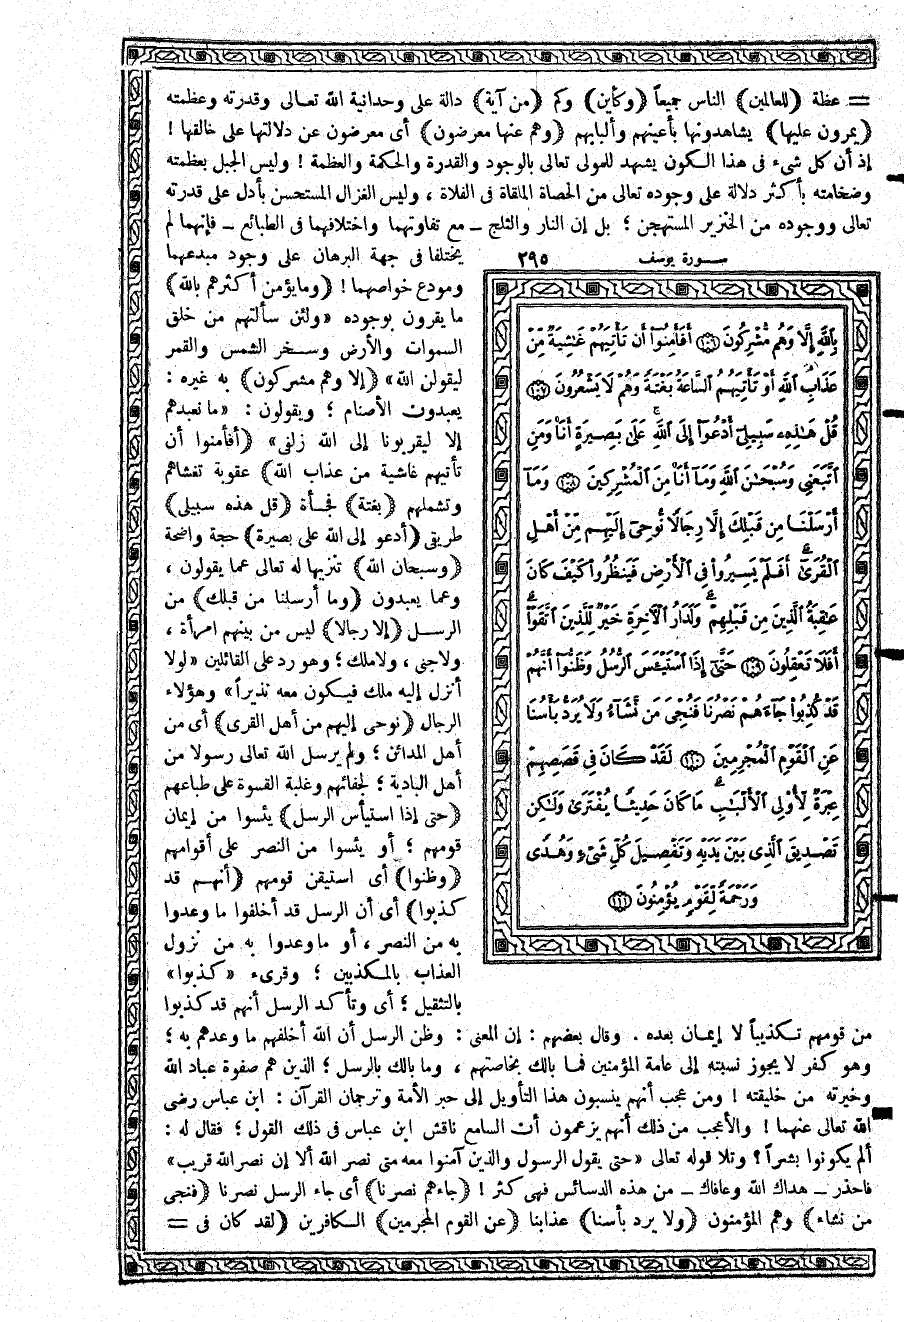 = عظة (للعالمين) الناس جميعاً (وكأين) وكم (من آية) دالة على وحدانية الله تعالى وقدرته وعظمته
(يمرون عليها) يشاهدونها بأعينهم وألبابهم (وهم عنها معرضون) أى معرضون عن دلالتها على خالقها !
إذ أن كل شىء فى هذا الكون يشهد للمولى تعالى بالوجود والقدرة والحكمة والعظمة ! وليس الجبل بعظمته
وضخامته بأكثر دلالة على وجوده تعالى من الحصاة الملقاة فى الفلاة ، وليس الغزال المستحسن بأدل على قدرته
تعالى ووجوده من الخنزير المستهجن ؛ بل إن النار والثلج ـ مع تفاوتهما واختلافهما فى الطبائع ـ فإنهما لم
يختلفا فى جهة البرهان على وجود مبدعهما
ومودع خواصهما ! (وما يؤمن أكثرهم بالله)
ما يقرون بوجوده «ولئن سألتهم من خلق
السموات والأرض وسخر الشمس والقمر
ليقولن الله» (إلا وهم مشركون) به غيره :
يعبدون الأصنام ؛ ويقولون : «ما نعبدهم
إلا ليقربونا إلى الله زلفى» (أفأمنوا أن
تأتيهم غاشية من عذاب الله) عقوبة تغشاهم
وتشملهم (بغتة) فجأة (قل هذه سبيلى)
طريقى (أدعو إلى الله على بصيرة) حجة واضحة
(وسبحان الله) تنزيها له تعالى عما يقولون ،
وعما يعبدون (وما أرسلنا من قبلك) من
الرسل (إلا رجالا) ليس من بينهم امرأة ،
ولا جنى ، ولا ملك ؛ وهو رد على القائلين «لولا
أنزل إليه ملك فيكون معه نذيراً» وهؤلاء
الرجال (نوحى إليهم من أهل القرى) أى من
أهل المدائن ؛ ولم يرسل الله تعالى رسولا من
أهل البادية ؛ لجفائهم وغلبة القسوة على طباعهم
(حتى إذا استيأس الرسل) يئسوا من إيمان
قومهم ؛ أو يئسوا من النصر على أقوامهم
(وظنوا) أى استيقن قومهم (أنهم قد
كذبوا) أى أن الرسل قد أخلفوا ما وعدوا
به من النصر ، أو ما وعدوا به من نزول
العذاب بالمكذبين ؛ وقرىء «كذبوا»
بالتثقيل ؛ أى وتأكد الرسل أنهم قد كذبوا
سورة يوسف ٢٩٥
بِاللَّهِ إِلَّا وَهُم مُّشْرِكُونَ ١٠٦ أَفَأَمِنُوٓا۟ أَن تَأْتِيَهُمْ غَٰشِيَةٌ مِّنْ
عَذَابِ ٱللَّهِ أَوْ تَأْتِيَهُمُ ٱلسَّاعَةُ بَغْتَةً وَهُمْ لَا يَشْعُرُونَ ١٠٧
قُلْ هَٰذِهِۦ سَبِيلِىٓ أَدْعُوٓا۟ إِلَى ٱللَّهِ عَلَىٰ بَصِيرَةٍ أَنَا۠ وَمَنِ
ٱتَّبَعَنِى وَسُبْحَٰنَ ٱللَّهِ وَمَآ أَنَا۠ مِنَ ٱلْمُشْرِكِينَ ١٠٨ وَمَآ
أَرْسَلْنَا مِن قَبْلِكَ إِلَّا رِجَالًا نُّوحِىٓ إِلَيْهِم مِّنْ أَهْلِ
ٱلْقُرَىٰٓ أَفَلَمْ يَسِيرُوا۟ فِى ٱلْأَرْضِ فَيَنظُرُوا۟ كَيْفَ كَانَ
عَٰقِبَةُ ٱلَّذِينَ مِن قَبْلِهِمْ وَلَدَارُ ٱلْـَٔاخِرَةِ خَيْرٌ لِّلَّذِينَ ٱتَّقَوْا۟
أَفَلَا تَعْقِلُونَ ١٠٩ حَتَّىٰٓ إِذَا ٱسْتَيْـَٔسَ ٱلرُّسُلُ وَظَنُّوٓا۟ أَنَّهُمْ
قَدْ كُذِبُوا۟ جَآءَهُمْ نَصْرُنَا فَنُجِّىَ مَن نَّشَآءُ وَلَا يُرَدُّ بَأْسُنَا
عَنِ ٱلْقَوْمِ ٱلْمُجْرِمِينَ ١١٠ لَقَدْ كَانَ فِى قَصَصِهِمْ
عِبْرَةٌ لِّأُو۟لِى ٱلْأَلْبَٰبِ مَا كَانَ حَدِيثًا يُفْتَرَىٰ وَلَٰكِن
تَصْدِيقَ ٱلَّذِى بَيْنَ يَدَيْهِ وَتَفْصِيلَ كُلِّ شَىْءٍ وَهُدًى
وَرَحْمَةً لِّقَوْمٍ يُؤْمِنُونَ ١١١
من قومهم تكذيباً لا إيمان بعده . وقال بعضهم : إن المعنى : وظن الرسل أن الله أخلفهم ما وعدهم به ؛
وهو كفر لا يجوز نسبته إلى عامة المؤمنين فما بالك بخاصتهم ، وما بالك بالرسل ؛ الذين هم صفوة عباد الله
وخيرته من خليقته ! ومن عجب أنهم ينسبون هذا التأويل إلى حبر الأمة وترجمان القرآن : ابن عباس رضى
الله تعالى عنهما ! والأعجب من ذلك أنهم يزعمون أن السامع ناقش ابن عباس فى ذلك القول ؛ فقال له :
ألم يكونوا بشراً ؟ وتلا قوله تعالى «حتى يقول الرسول والذين آمنوا معه متى نصر الله ألا إن نصر الله قريب»
فاحذر ـ هداك الله وعافاك ـ من هذه الدسائس فهى كثر ! (جاءهم نصرنا) أى جاء الرسل نصرنا (فنجى
من نشاء) وهم المؤمنون (ولا يرد بأسنا) عذابنا (عن القوم المجرمين) الكافرين (لقد كان فى =